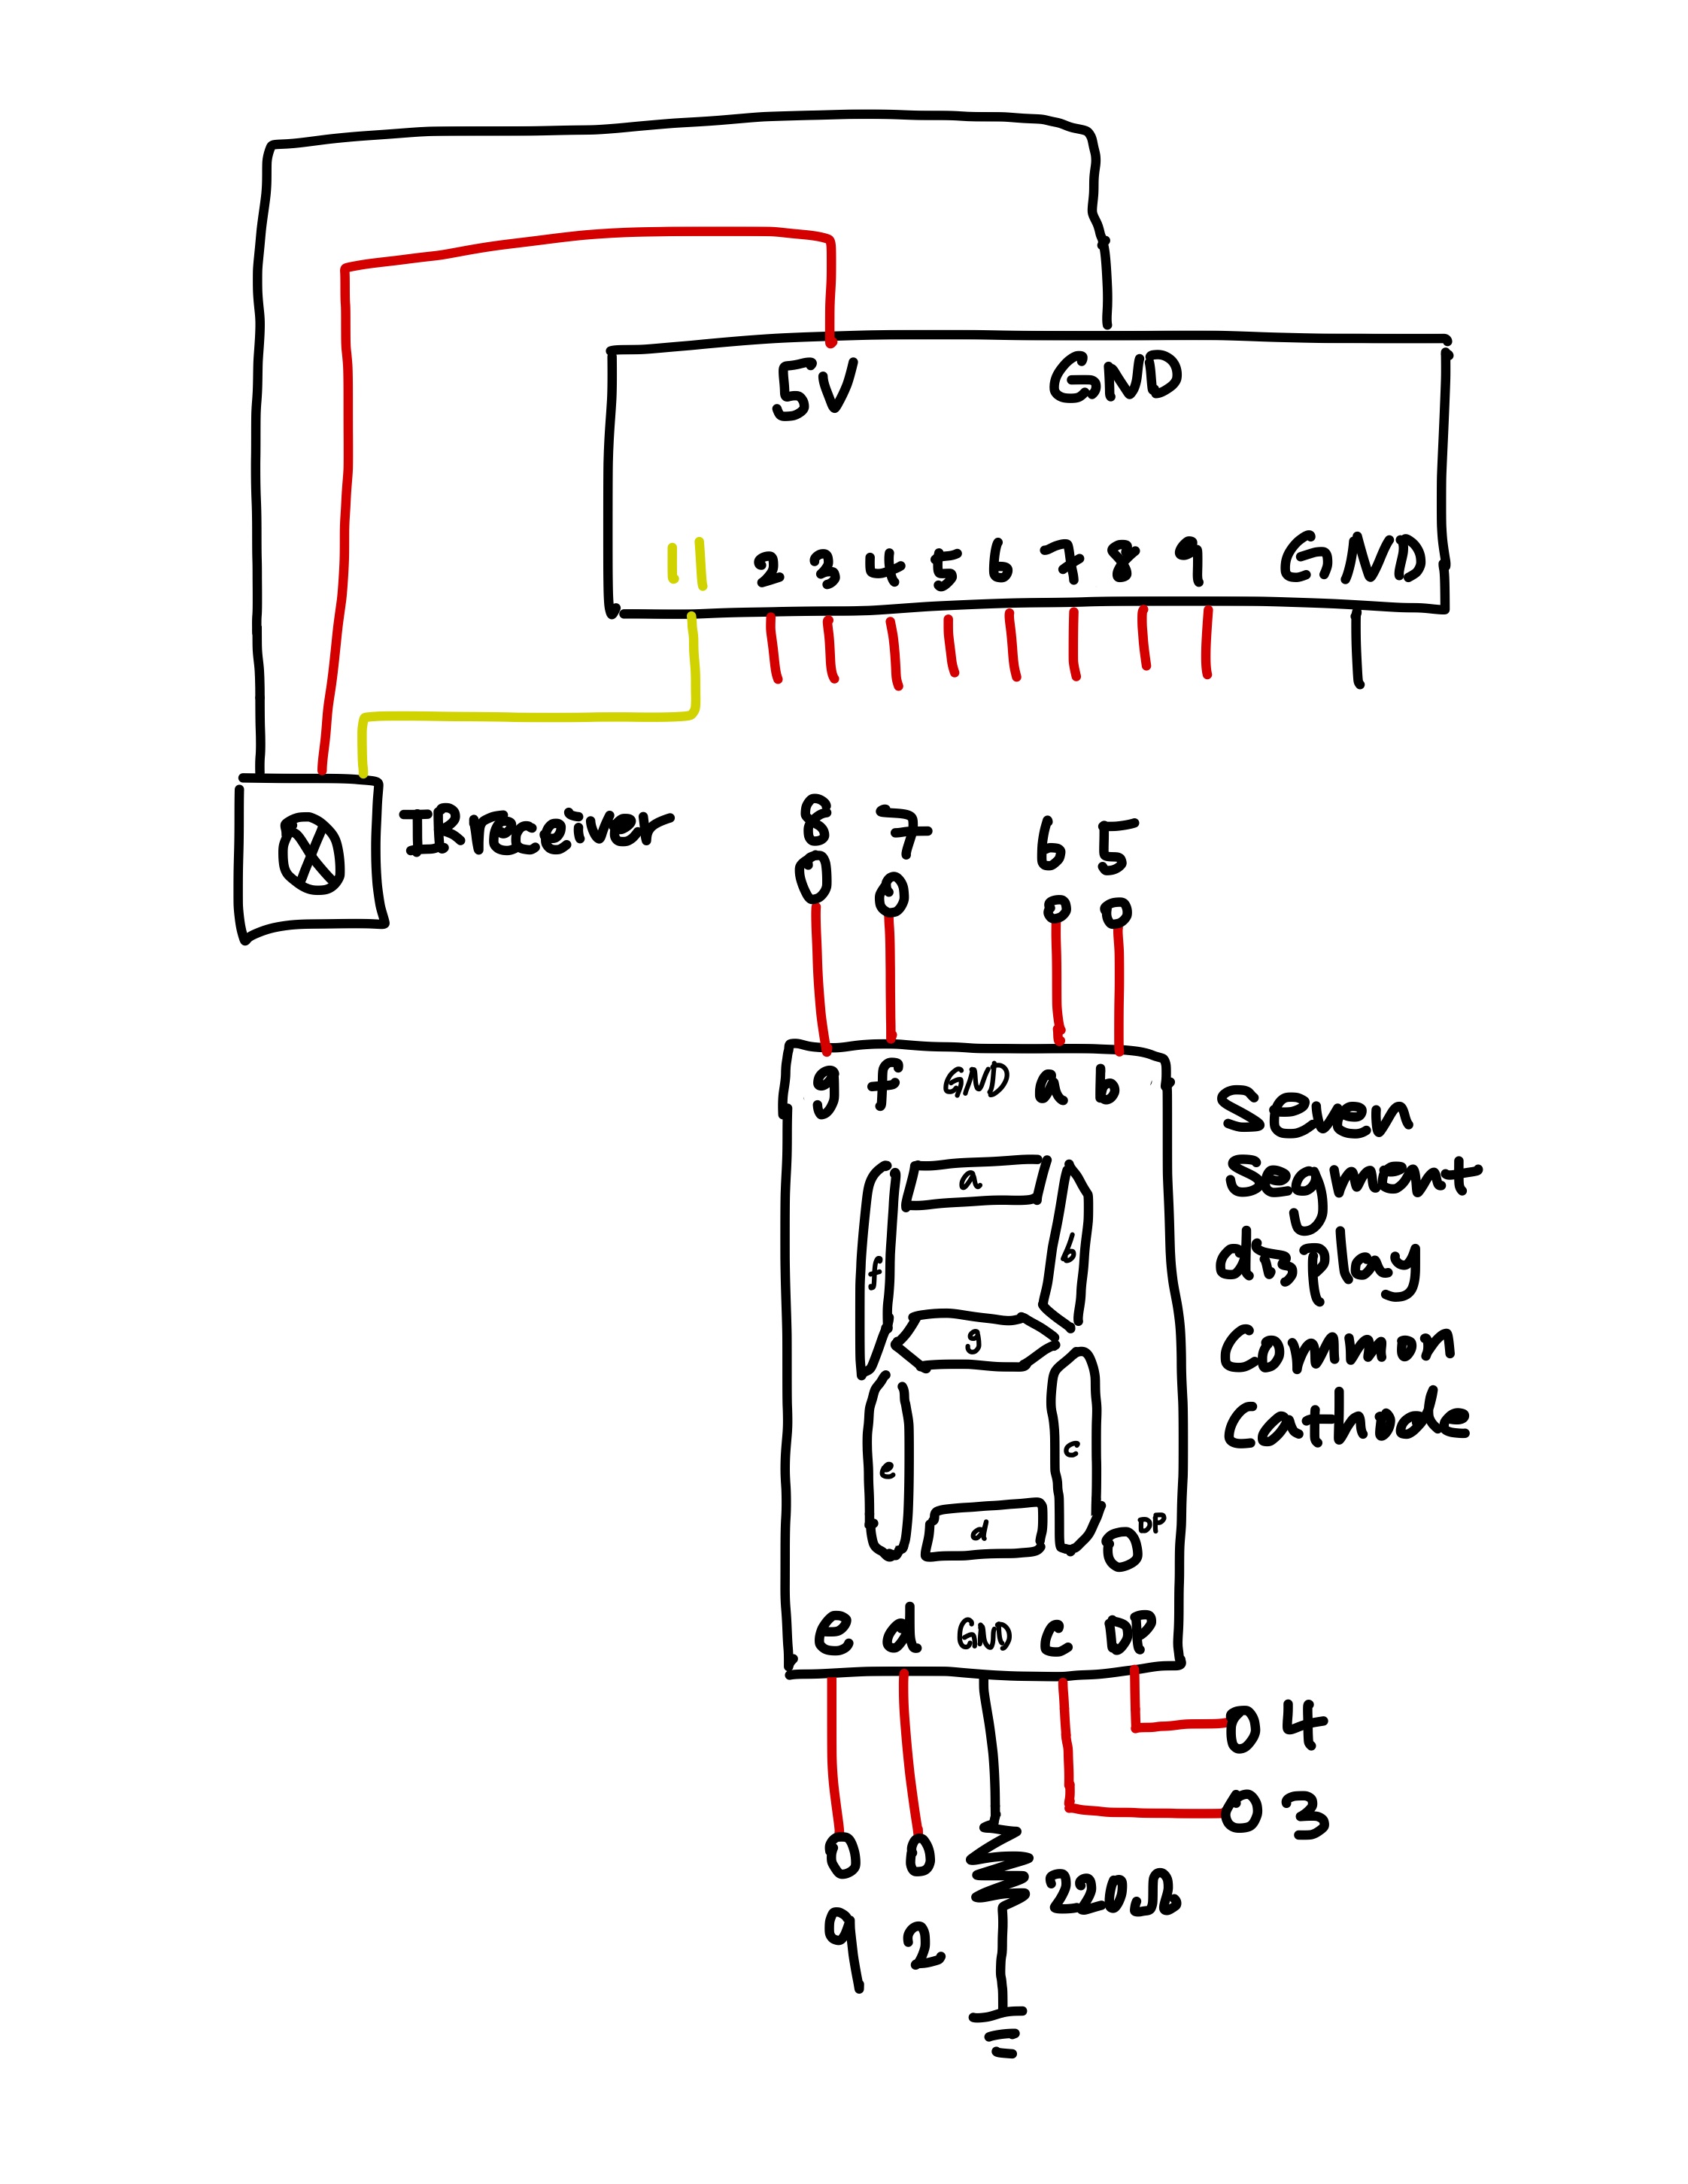 5V GND
11 2 3 4 5 6 7 8 9 GND
IR receiver
8 7 6 5
g f GND a b
a
f b
g
e c
d
DP
Seven
Segment
display
Common
Cathode
e d GND c DP
4
3
220Ω
9 2